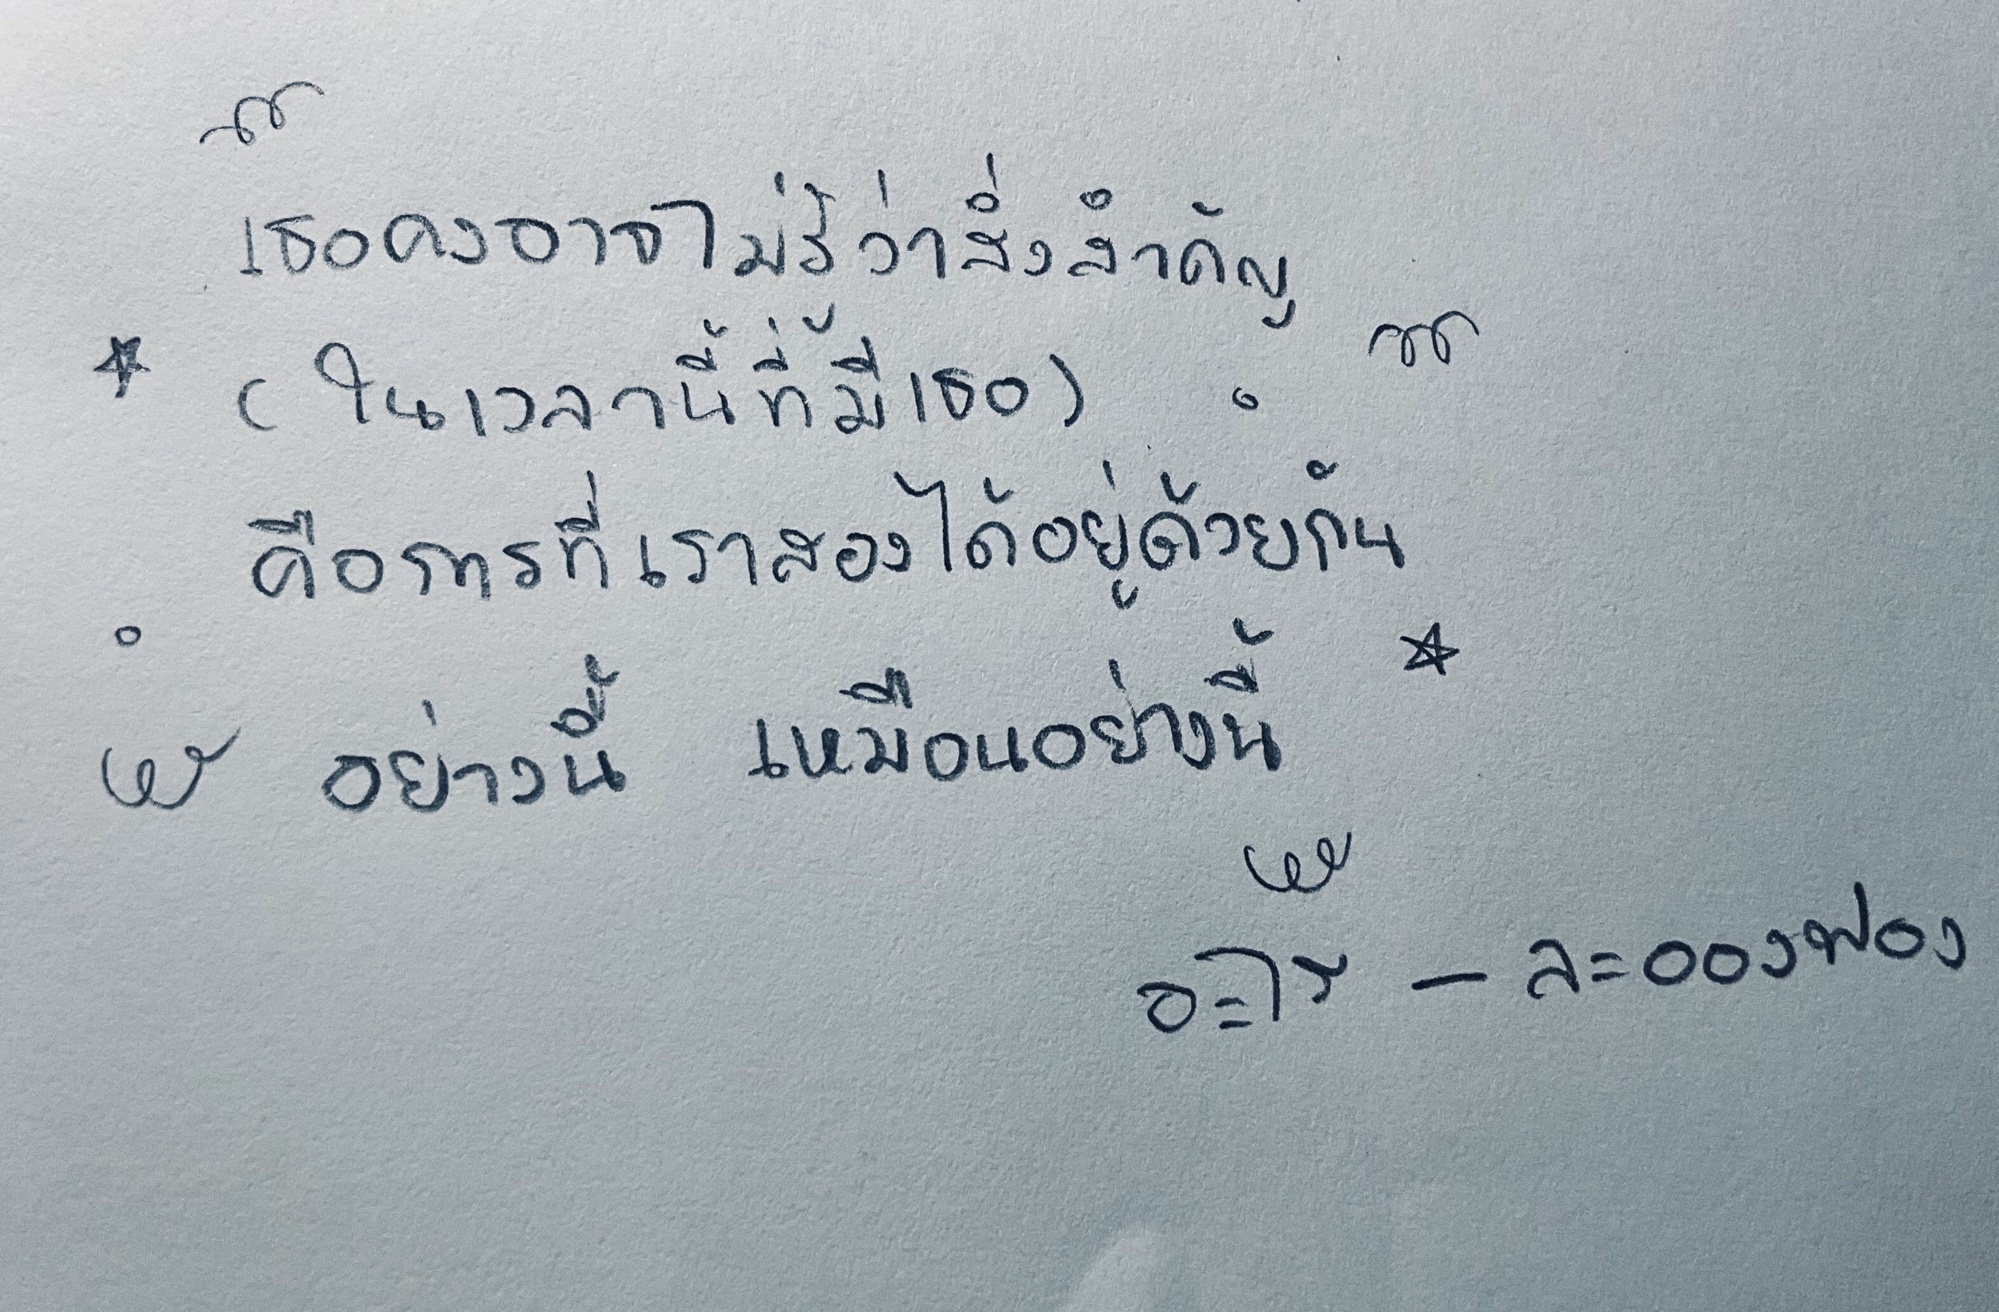 เธอคงอาจไม่รู้ว่าสิ่งสำคัญ
(ในเวลานี้ที่มีเธอ)
คือการที่เราสองได้อยู่ด้วยกัน
อย่างนี้ เหมือนอย่างนี้
อะไร - ละอองฟอง